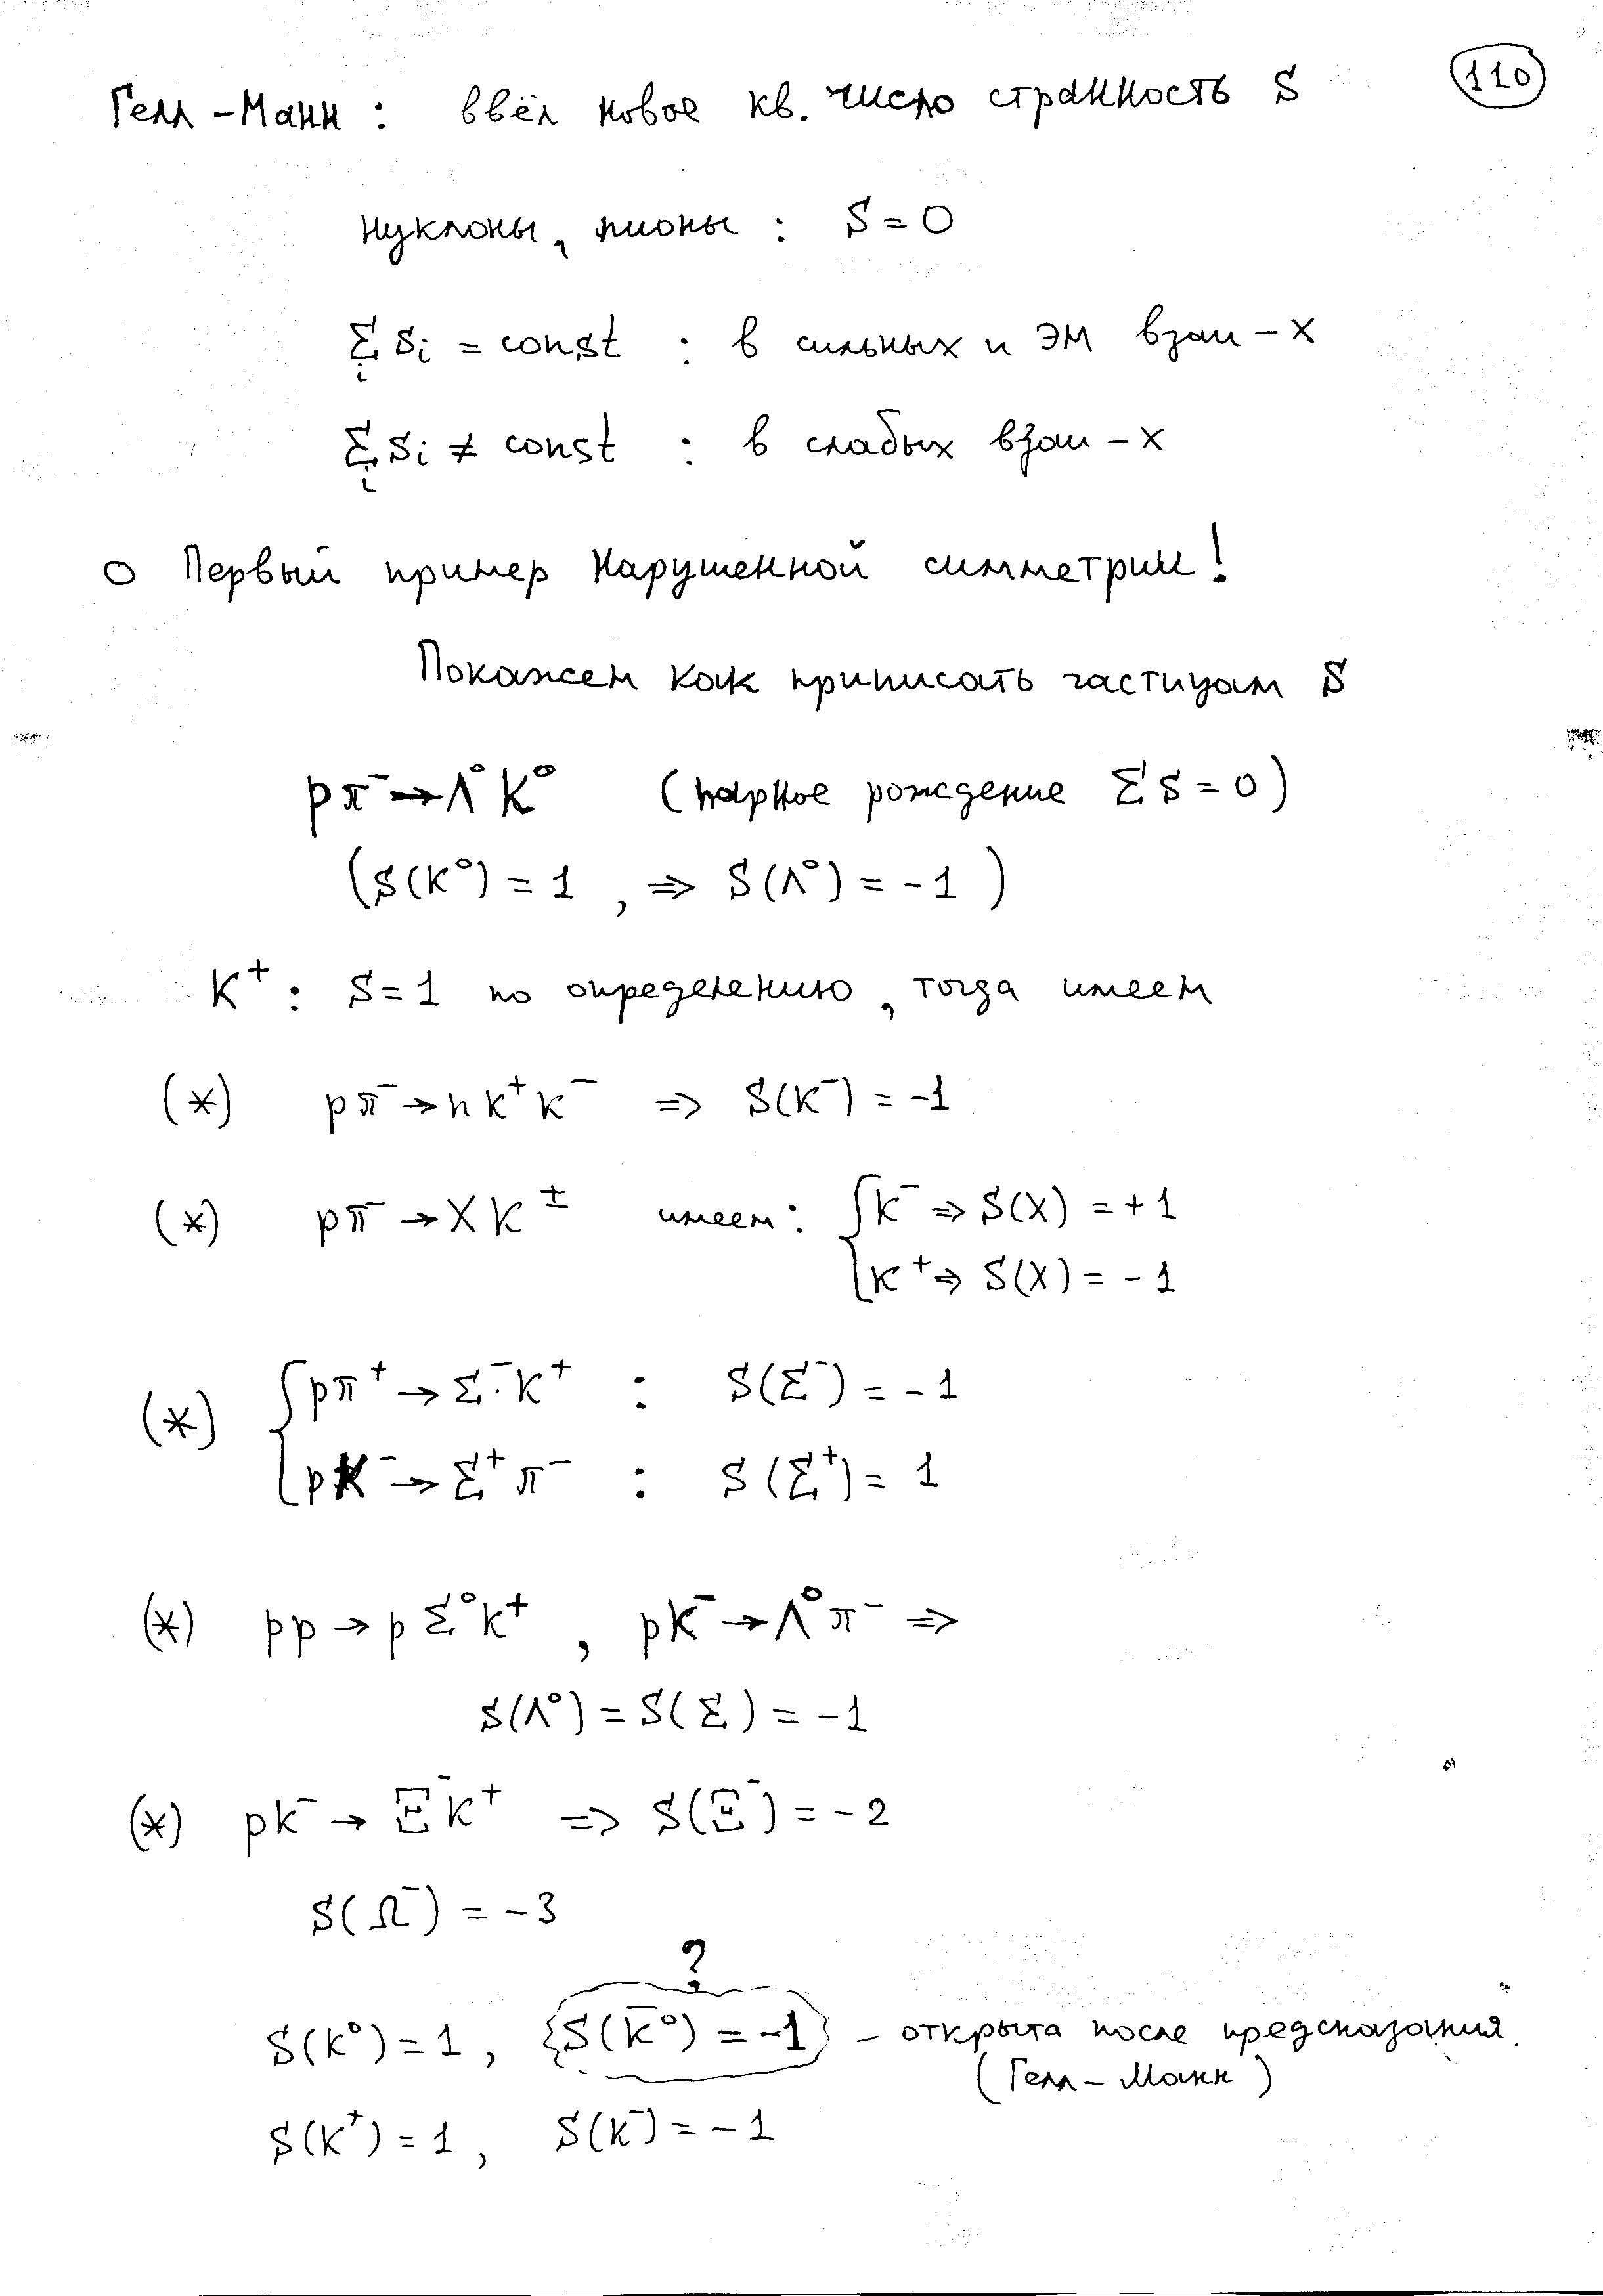 110
Гелл-Манн : ввёл новое кв. число странность S
нуклоны, пионы : S = 0
∑ᵢ Sᵢ = const : в сильных и ЭМ взаи-х
∑ᵢ Sᵢ ≠ const : в слабых взаи-х
○ Первый пример нарушенной симметрии!
Покажем как приписать частицам S
pπ⁻ → Λ⁰ K⁰ (парное рождение ∑S = 0)
(S(K⁰) = 1 , ⇒ S(Λ⁰) = -1 )
K⁺ : S = 1 по определению, тогда имеем
(*) pπ⁻ → n K⁺ K⁻ ⇒ S(K⁻) = -1
(*) pπ⁻ → X K^± имеем : { K⁻ ⇒ S(X) = +1
K⁺ ⇒ S(X) = -1
(*) { pπ⁺ → Σ⁻ K⁺ : S(Σ⁻) = -1
pK⁻ → Σ⁺ π⁻ : S(Σ⁺) = 1
(*) pp → p Σ⁰ K⁺ , pK⁻ → Λ⁰ π⁻ ⇒
S(Λ⁰) = S(Σ) = -1
(*) pK⁻ → Ξ⁻ K⁺ ⇒ S(Ξ⁻) = -2
S(Ω⁻) = -3
?
S(K⁰) = 1 , {S(K̄⁰) = -1} - открыта после предсказания.
(Гелл-Манн)
S(K⁺) = 1 , S(K⁻) = -1